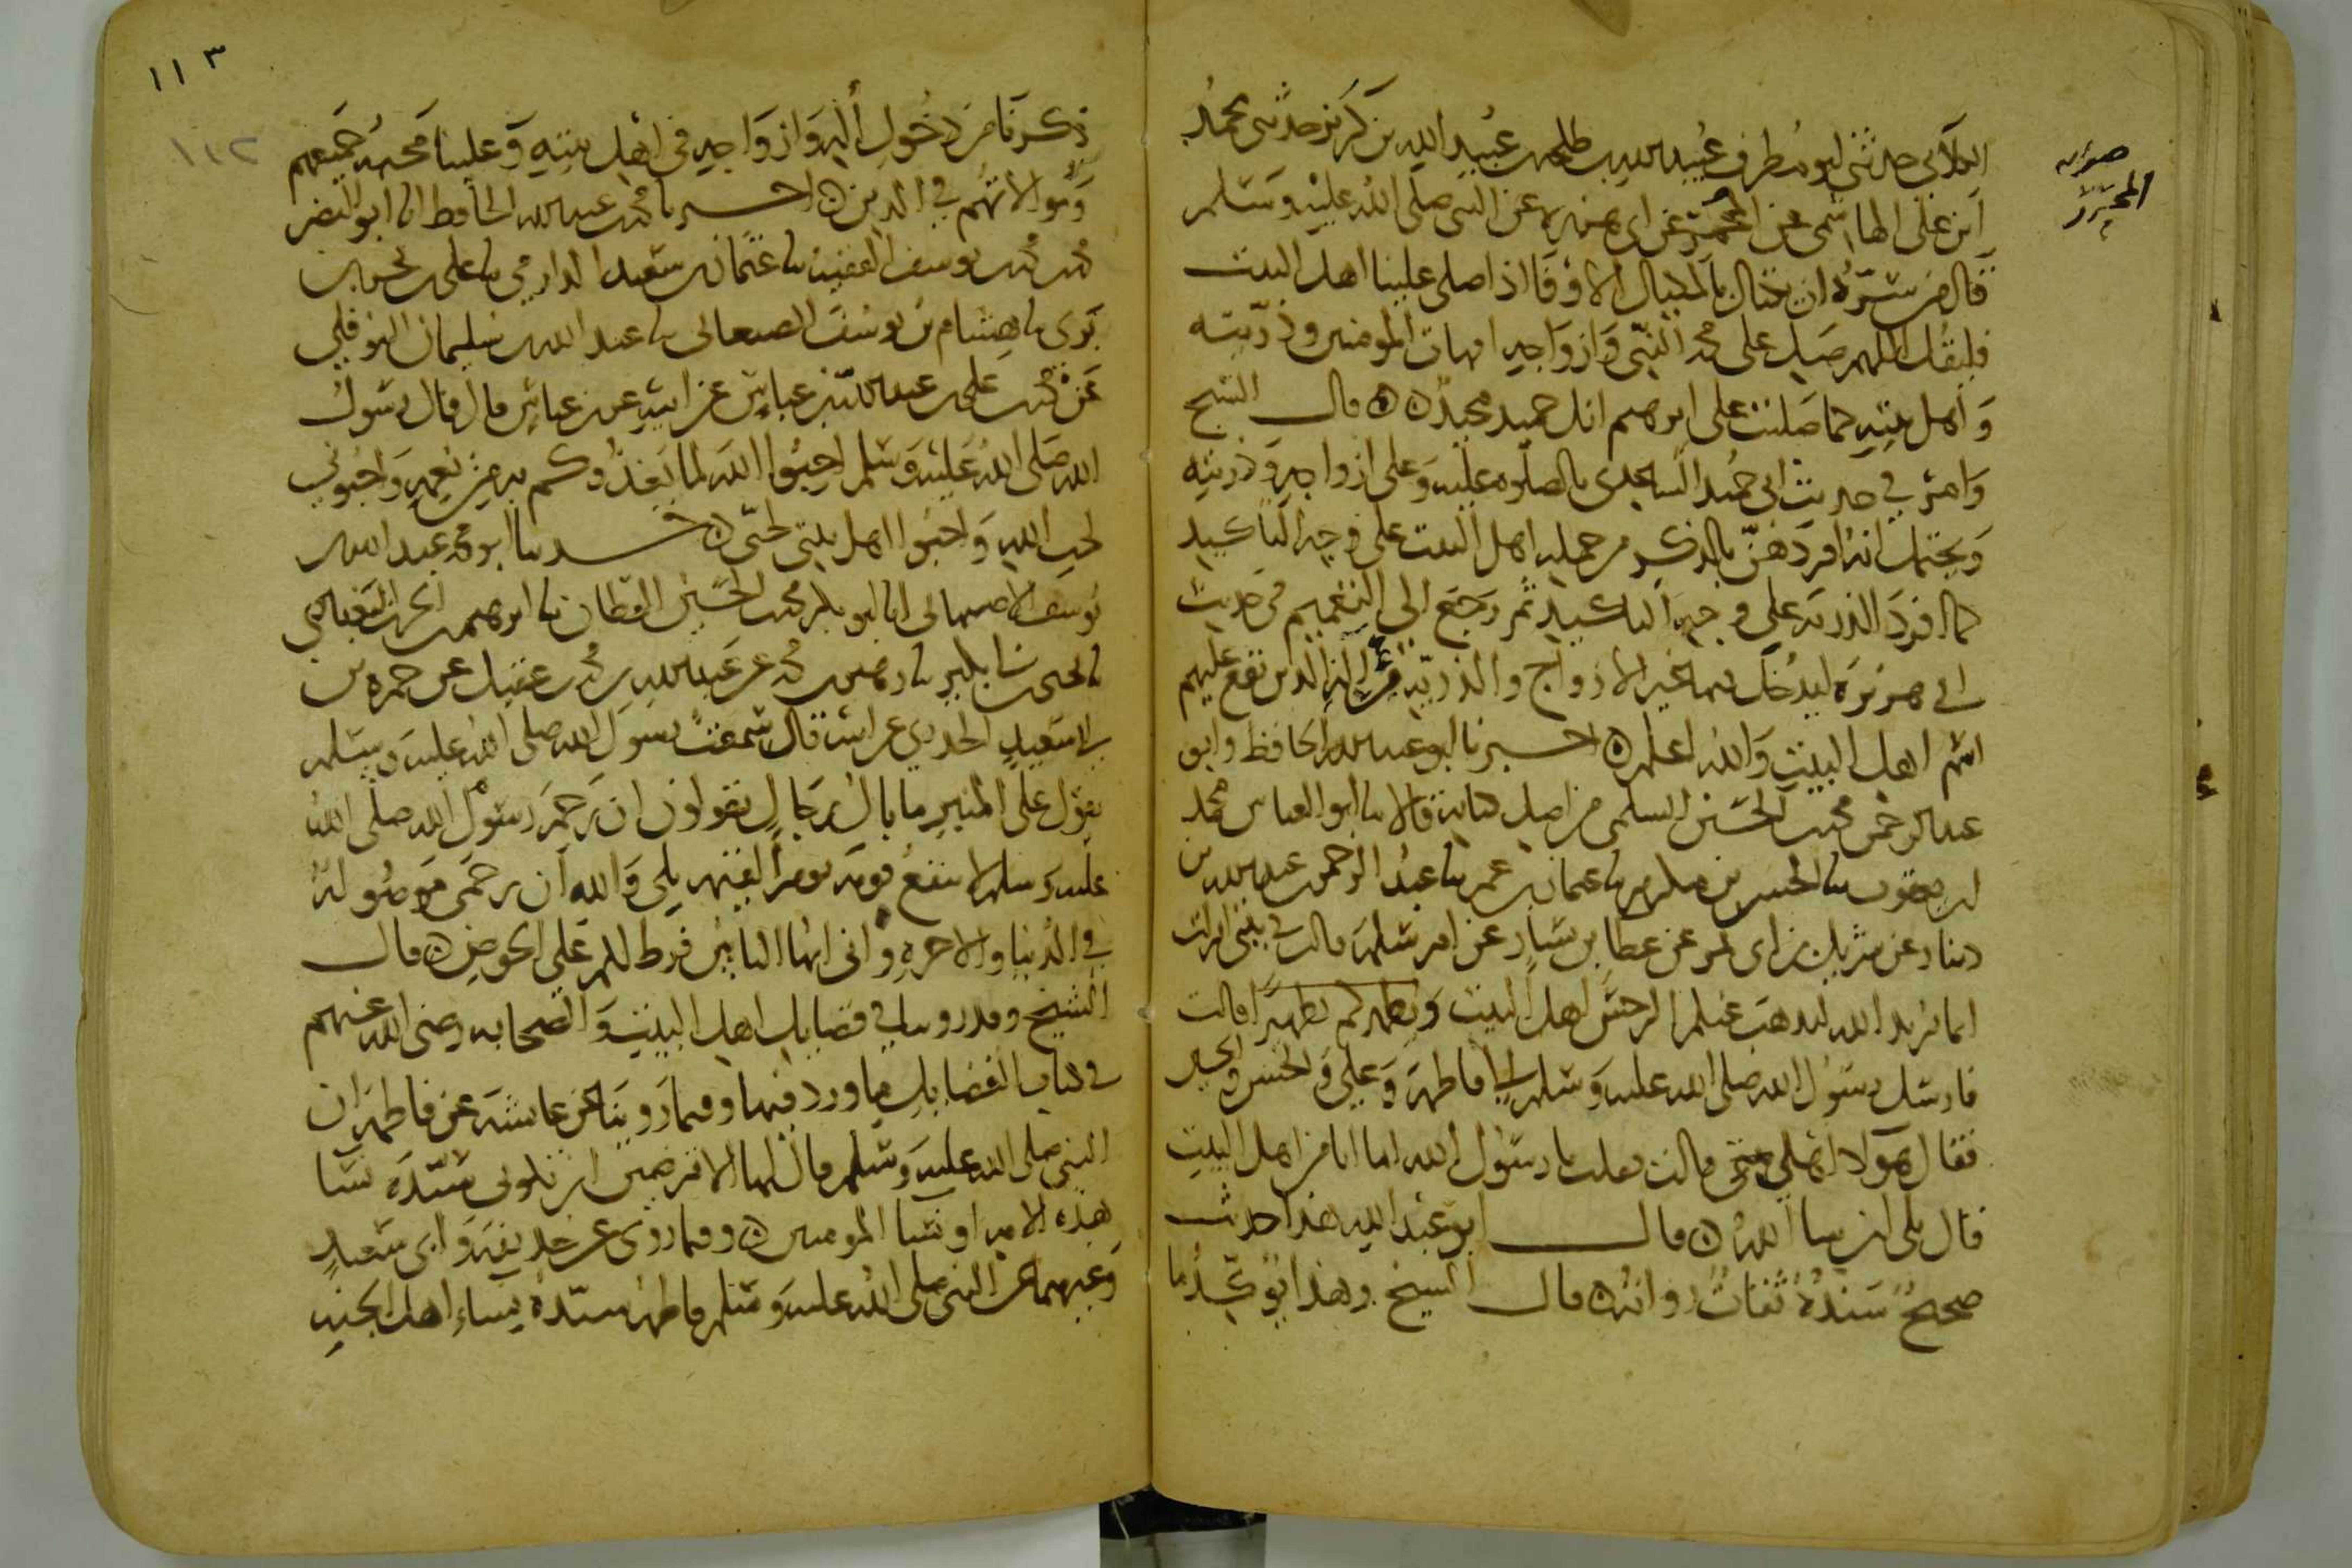 الكلابي حدثني ابو مطرف عبيد الله بن طلحة بن عبيد الله بن كريز حدثني محمد
ابن علي الهاشمي عن المجمر عن ابي هريرة عن النبي صلى الله عليه وسلم
قال من سره ان يكتال بالمكيال الاوفى اذا صلى علينا اهل البيت
فليقل اللهم صل على محمد النبي وازواجه امهات المومنين وذريته
واهل بيته كما صليت على ابرهيم انك حميد مجيد قال الشيخ
وامر في حديث ابي حميد الساعدي بالصلوة عليه وعلى ازواجه وذريته
ويحتمل انه افردهن بالذكر من جملة اهل البيت على وجه التاكيد
كما افرد الذرية على وجه التاكيد ثم رجع الى التعميم في حديث
ابي هريرة ليدخل فيها غير الازواج والذرية من اله الذين تقع عليهم
اسم اهل البيت والله اعلم اخبرنا ابو عبد الله الحافظ وابو
عبد الرحمن محمد بن الحسين السلمي من اصل كتابه قالا نا ابو العباس محمد
بن يعقوب نا الحسن بن مكرم نا عثمان بن عمر نا عبد الرحمن بن عبد الله بن
دينار عن شريك بن ابي نمر عن عطا بن يسار عن ام سلمة قالت في بيتي انزلت
انما يريد الله ليذهب عنكم الرجس اهل البيت ويطهركم تطهيرا قالت
فارسل رسول الله صلى الله عليه وسلم الى فاطمة وعلي والحسن والحسين
فقال هولا اهلي قالت فقلت يا رسول الله اما انا من اهل البيت
قال بلى ان شا الله قال ابو عبد الله هذا حديث
صحيح سنده ثقات رواته قال الشيخ وهذا يوكد ما
صوابه
المجمر
١١٣
١١٢
ذكرنا من دخول اله وازواجه في اهل بيته وعلينا محبة جميعهم
وموالاتهم في الدين اخبرنا محمد بن عبد الله الحافظ انا ابو النضر
محمد بن محمد بن يوسف الفقيه نا عثمان بن سعيد الدارمي نا علي بن بحر بن
بري نا هشام بن يوسف الصنعاني نا عبد الله بن سليمان النوفلي
عن محمد بن علي بن عبد الله بن عباس عن ابيه عن بن عباس قال قال رسول
الله صلى الله عليه وسلم احبوا الله لما يغذوكم به من نعمه واحبوني
لحب الله واحبوا اهل بيتي لحبي حدثنا ابو محمد عبد الله بن
يوسف الاصبهاني انا ابو بكر محمد بن الحسين القطان نا ابرهيم بن الحرث البغدادي
نا يحيى بن ابي بكير نا زهير بن محمد عن عبد الله بن محمد بن عقيل عن حمزة بن
ابي سعيد الخدري عن ابيه قال سمعت رسول الله صلى الله عليه وسلم
يقول على المنبر ما بال رجال يقولون ان رحم رسول الله صلى الله
عليه وسلم لا ينفع قومه يوم القيمة بلى والله ان رحمي موصولة
في الدنيا والاخرة واني ايها الناس فرط لكم على الحوض قال
الشيخ وقد روينا في فضايل اهل البيت والصحابة رضي الله عنهم
في كتاب الفضايل ما ورد فيها وفيما روينا عن عايشة عن فاطمة ان
النبي صلى الله عليه وسلم قال لها الا ترضين ان تكوني سيدة نسا
هذه الامة او نسا المومنين وفيما روي عن حذيفة وابي سعيد
وغيرهما عن النبي صلى الله عليه وسلم فاطمة سيدة نساء اهل الجنة